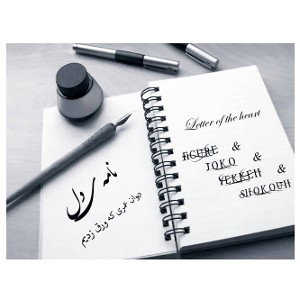 نامه ی دل
دیوان عمری که ورق زدیم
Letter of the heart
FIGURE &
JOKO &
YEKKEH &
SHOKOUH